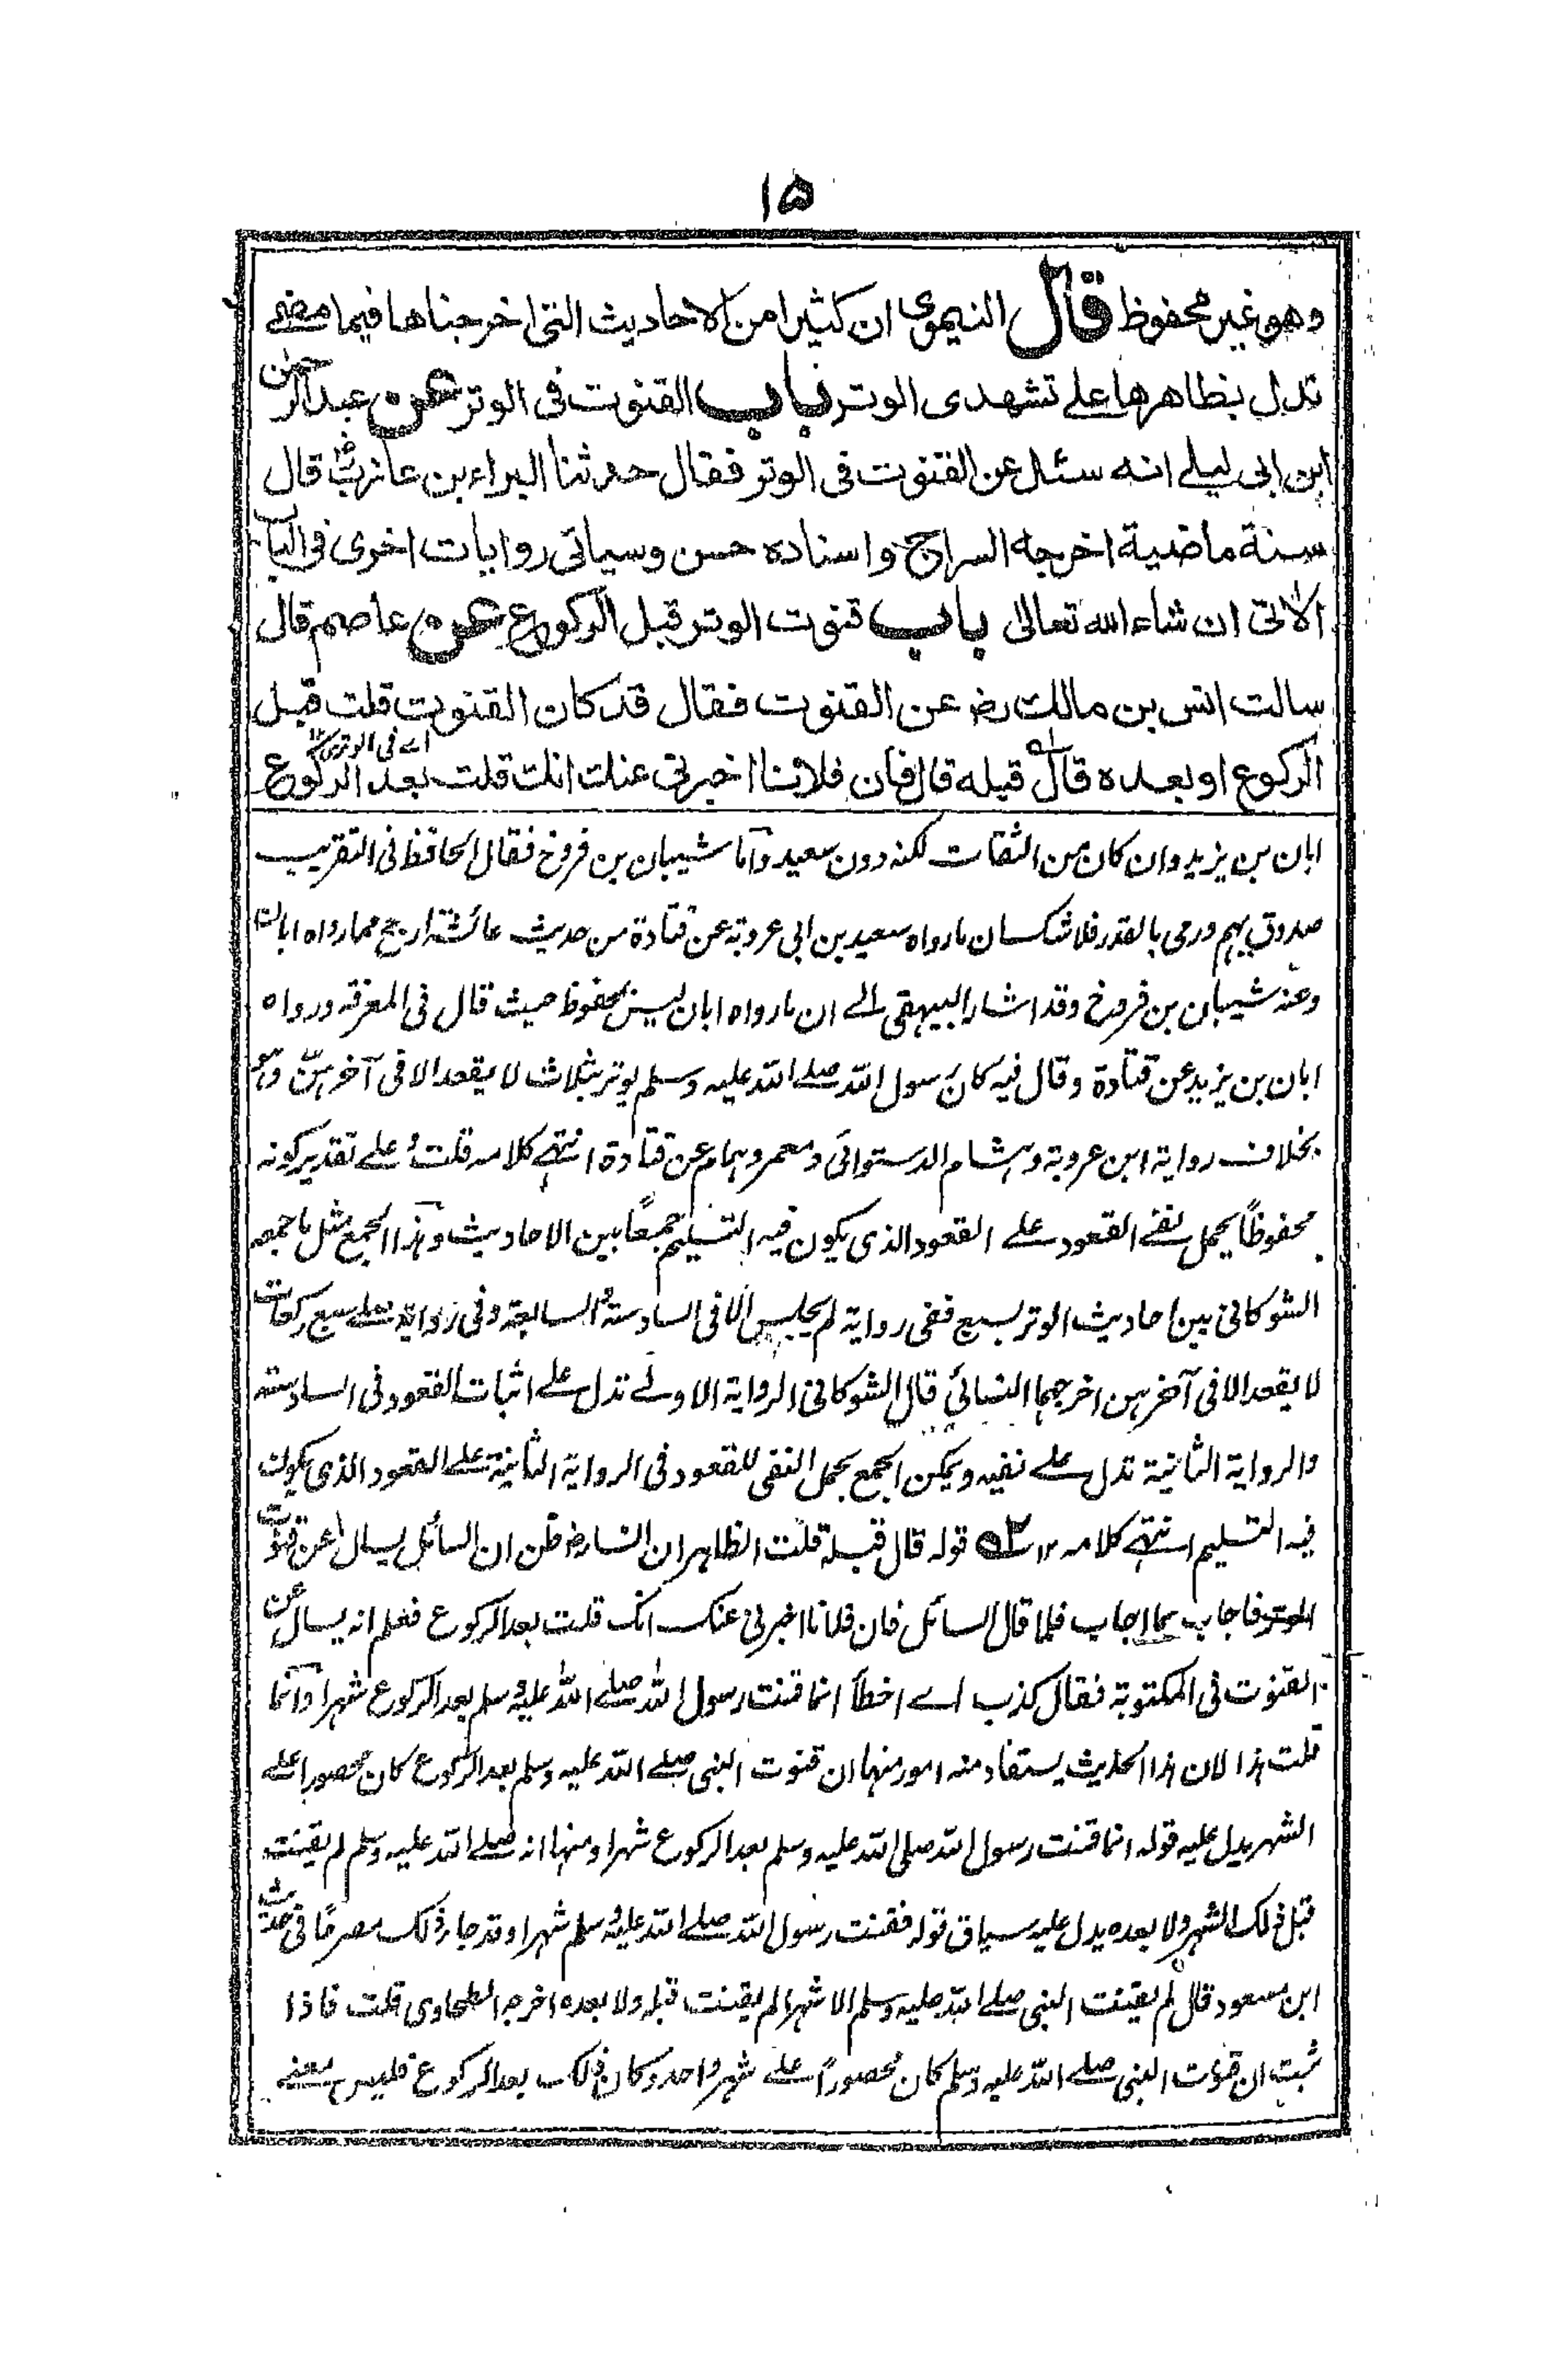 ١٥
وهو غير محفوظ قال النيموى ان كثيرا من الاحاديث التى اخرجناها فيما مضى
تدل بظاهرها على تشهدى الوتر باب القنوت فى الوتر عن عبد الرحمٰن
ابن ابى ليلے انه سئل عن القنوت فى الوتر فقال حدثنا البراء بن عازب رض قال
سنة ماضية اخرجه السراج واسناده حسن وسياتى روايات اخرى فى الباب
الاٰتى ان شاء الله تعالى باب قنوت الوتر قبل الركوع عن عاصم قال
سالت انس بن مالك رض عن القنوت فقال قد كان القنوت قلت قبل
اے فى الوتر ١٢
الركوع او بعده قال قبله قال فان فلانا اخبرنى عنك انك قلت بعد الركوع
ابان بن يزيد وان كان من الثقات لكنه دون سعيد واما شيبان بن فروخ فقال الحافظ فى التقريب
صدوق يهم ورمى بالقدر فلا شك ان ما رواه سعيد بن ابى عروبة عن قتادة من حديث عائشة ارجح مما رواه ابان
وعنه شيبان بن فروخ وقد اشار البيهقى الے ان ما رواه ابان ليس بمحفوظ حيث قال فى المعرفة ورواه
ابان بن يزيد عن قتادة وقال فيه كان رسول الله صلے الله عليه وسلم يوتر بثلاث لا يقعد الا فى آخرهن وهو
بخلاف رواية ابن عروبة وهشام الدستوائى ومعمر وهمام عن قتادة انتهى كلامه قلت علے تقدير كونه
محفوظاً يحمل نفى القعود علے القعود الذى يكون فيه التسليم جمعاً بين الاحاديث وهذا الجمع مثل ما جمعه
الشوكانى بين احاديث الوتر بسبع ففى رواية لم يجلس الا فى السادسة والسابعة وفى رواية صلے سبع ركعات
لا يقعد الا فى آخرهن اخرجهما النسائى قال الشوكانى الرواية الاولے تدل علے اثبات القعود فى السادسة
والرواية الثانية تدل علے نفيه ويمكن الجمع بحمل النفى للقعود فى الرواية الثانية علے القعود الذى يكون
فيه التسليم انتهى كلامه ١٢ قوله قال قبله قلت الظاهر ان انسا رض ظن ان السائل يسال عن قنوت
الوتر فاجاب بما اجاب فلما قال السائل فان فلانا اخبرنى عنك انك قلت بعد الركوع فعلم انه يسال عن
القنوت فى المكتوبة فقال كذب اے اخطأ انما قنت رسول الله صلے الله عليه وسلم بعد الركوع شهرا وانما
قلت هذا لان هذا الحديث يستفاد منه امور منها ان قنوت النبى صلے الله عليه وسلم بعد الركوع كان محصورا علے
الشهر يدل عليه قوله انما قنت رسول الله صلى الله عليه وسلم بعد الركوع شهرا ومنها انه صلے الله عليه وسلم لم يقنت
قبل ذلك الشهر ولا بعده يدل عليه سياق قوله فقنت رسول الله صلے الله عليه وسلم شهرا وقد جاء ذلك مصرحا فى حديث
ابن مسعود قال لم يقنت النبى صلے الله عليه وسلم الا شهرا لم يقنت قبله ولا بعده اخرجه الطحاوى قلت فاذا
ثبت ان قنوت النبى صلے الله عليه وسلم كان محصوراً علے شهر واحد وكان ذلك بعد الركوع فليس معنى